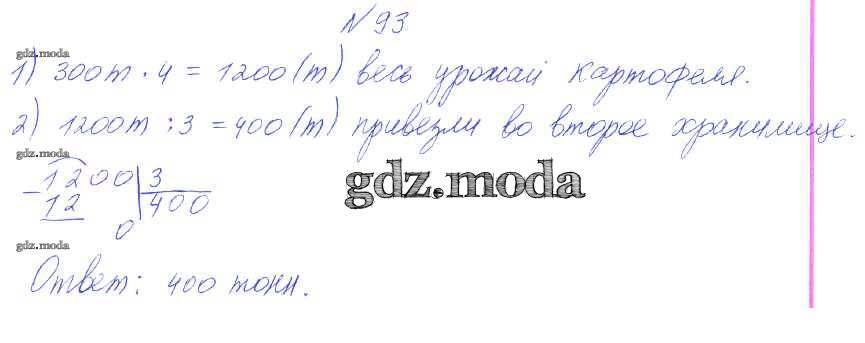 №93
gdz.moda
1) 300т · 4 = 1200 (т) весь урожай картофеля.
2) 1200т : 3 = 400 (т) привезли во второе хранилище.
gdz.moda
gdz.moda
- 1200 | 3
12 | 400
0
gdz.moda
Ответ: 400 тонн.